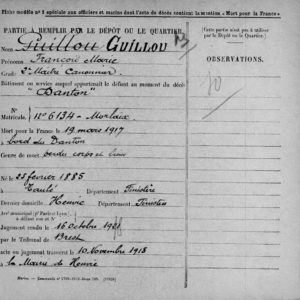 Fiche modèle n° 2 spéciale aux officiers et marins dont l'acte de décès contient la mention « Mort pour la France »
PARTIE A REMPLIR PAR LE DÉPÔT OU LE QUARTIER
Nom Guillou GUILLOU
François Marie
Grade 2e Maître Canonnier
Bâtiment ou service auquel appartenait le défunt au moment du décès
"Danton"
N°
Matricule. N° 6134 - Morlaix
Mort pour la France le 19 mars 1917
à bord du Danton
Genre de mort perdu corps et biens
Né le 23 février 1885
à Taulé Département Finistère
Dernier domicile Henvic Département Finistère
Arr' municipal (pr Paris et Lyon)
à défaut rue et N°
Jugement rendu le 16 octobre 1918
par le Tribunal de Brest
acte ou jugement transcrit le 10 Novembre 1918
à la Mairie de Henvic
Cette partie n'est pas à utiliser
par le Dépôt ou le Quartier.
OBSERVATIONS.